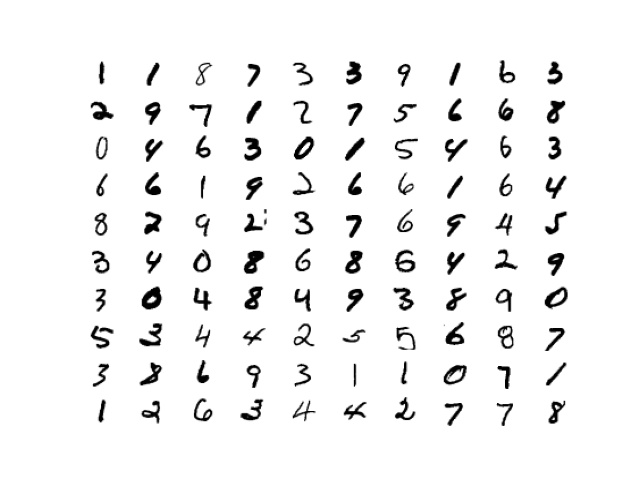 1 1 8 7 3 3 9 1 6 3
2 9 7 1 2 7 5 6 6 8
0 4 6 3 0 1 5 4 6 3
6 6 1 9 2 6 6 1 6 4
8 2 9 2 3 7 6 9 4 5
3 4 0 8 6 8 6 4 2 9
3 0 4 8 4 9 3 8 9 0
5 3 4 4 2 5 5 6 8 7
3 8 6 9 3 1 1 0 7 1
1 2 6 3 4 4 2 7 7 8